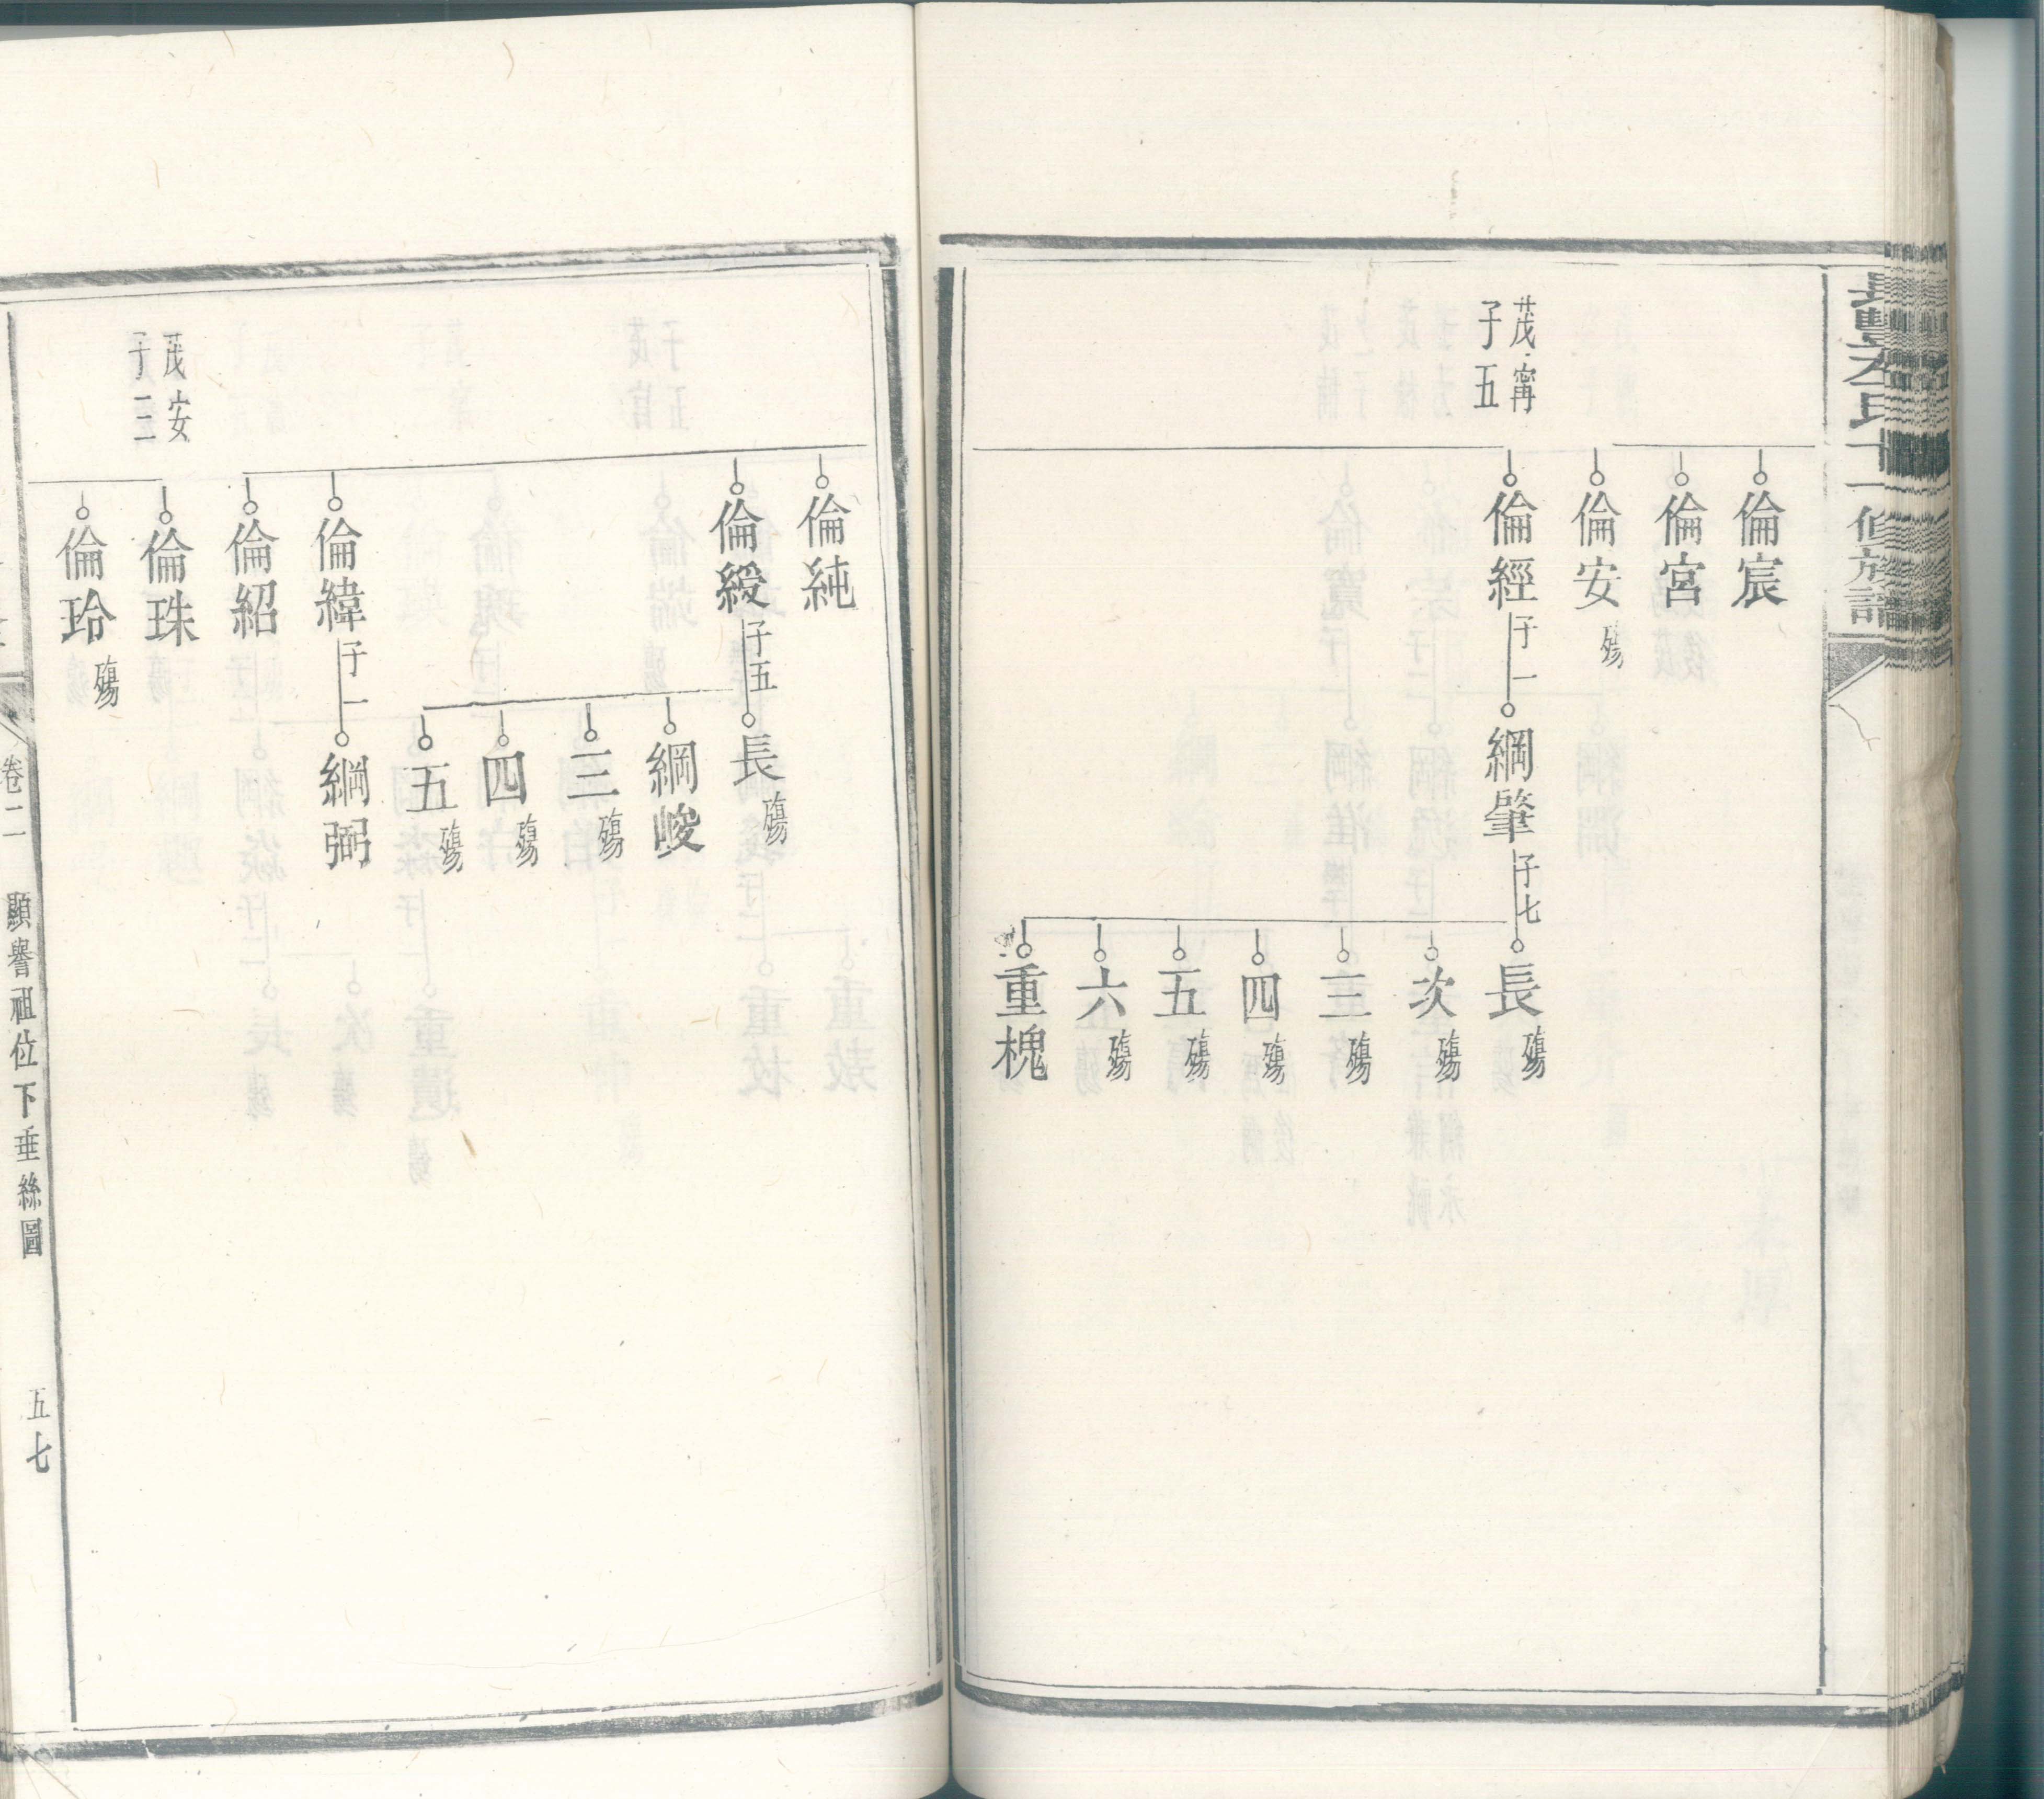 倫宸
倫宮
倫安 殤
茂甯
子五
倫經 子一
綱肇 子七
長 殤
次 殤
三 殤
四 殤
五 殤
六 殤
重槐
倫純
倫綬 子五
長 殤
綱峻
三 殤
四 殤
五 殤
倫緯 子一
綱弼
倫紹
茂安
子三
倫珠
倫玲 殤
卷二
顯譽祖位下垂絲圖
五七